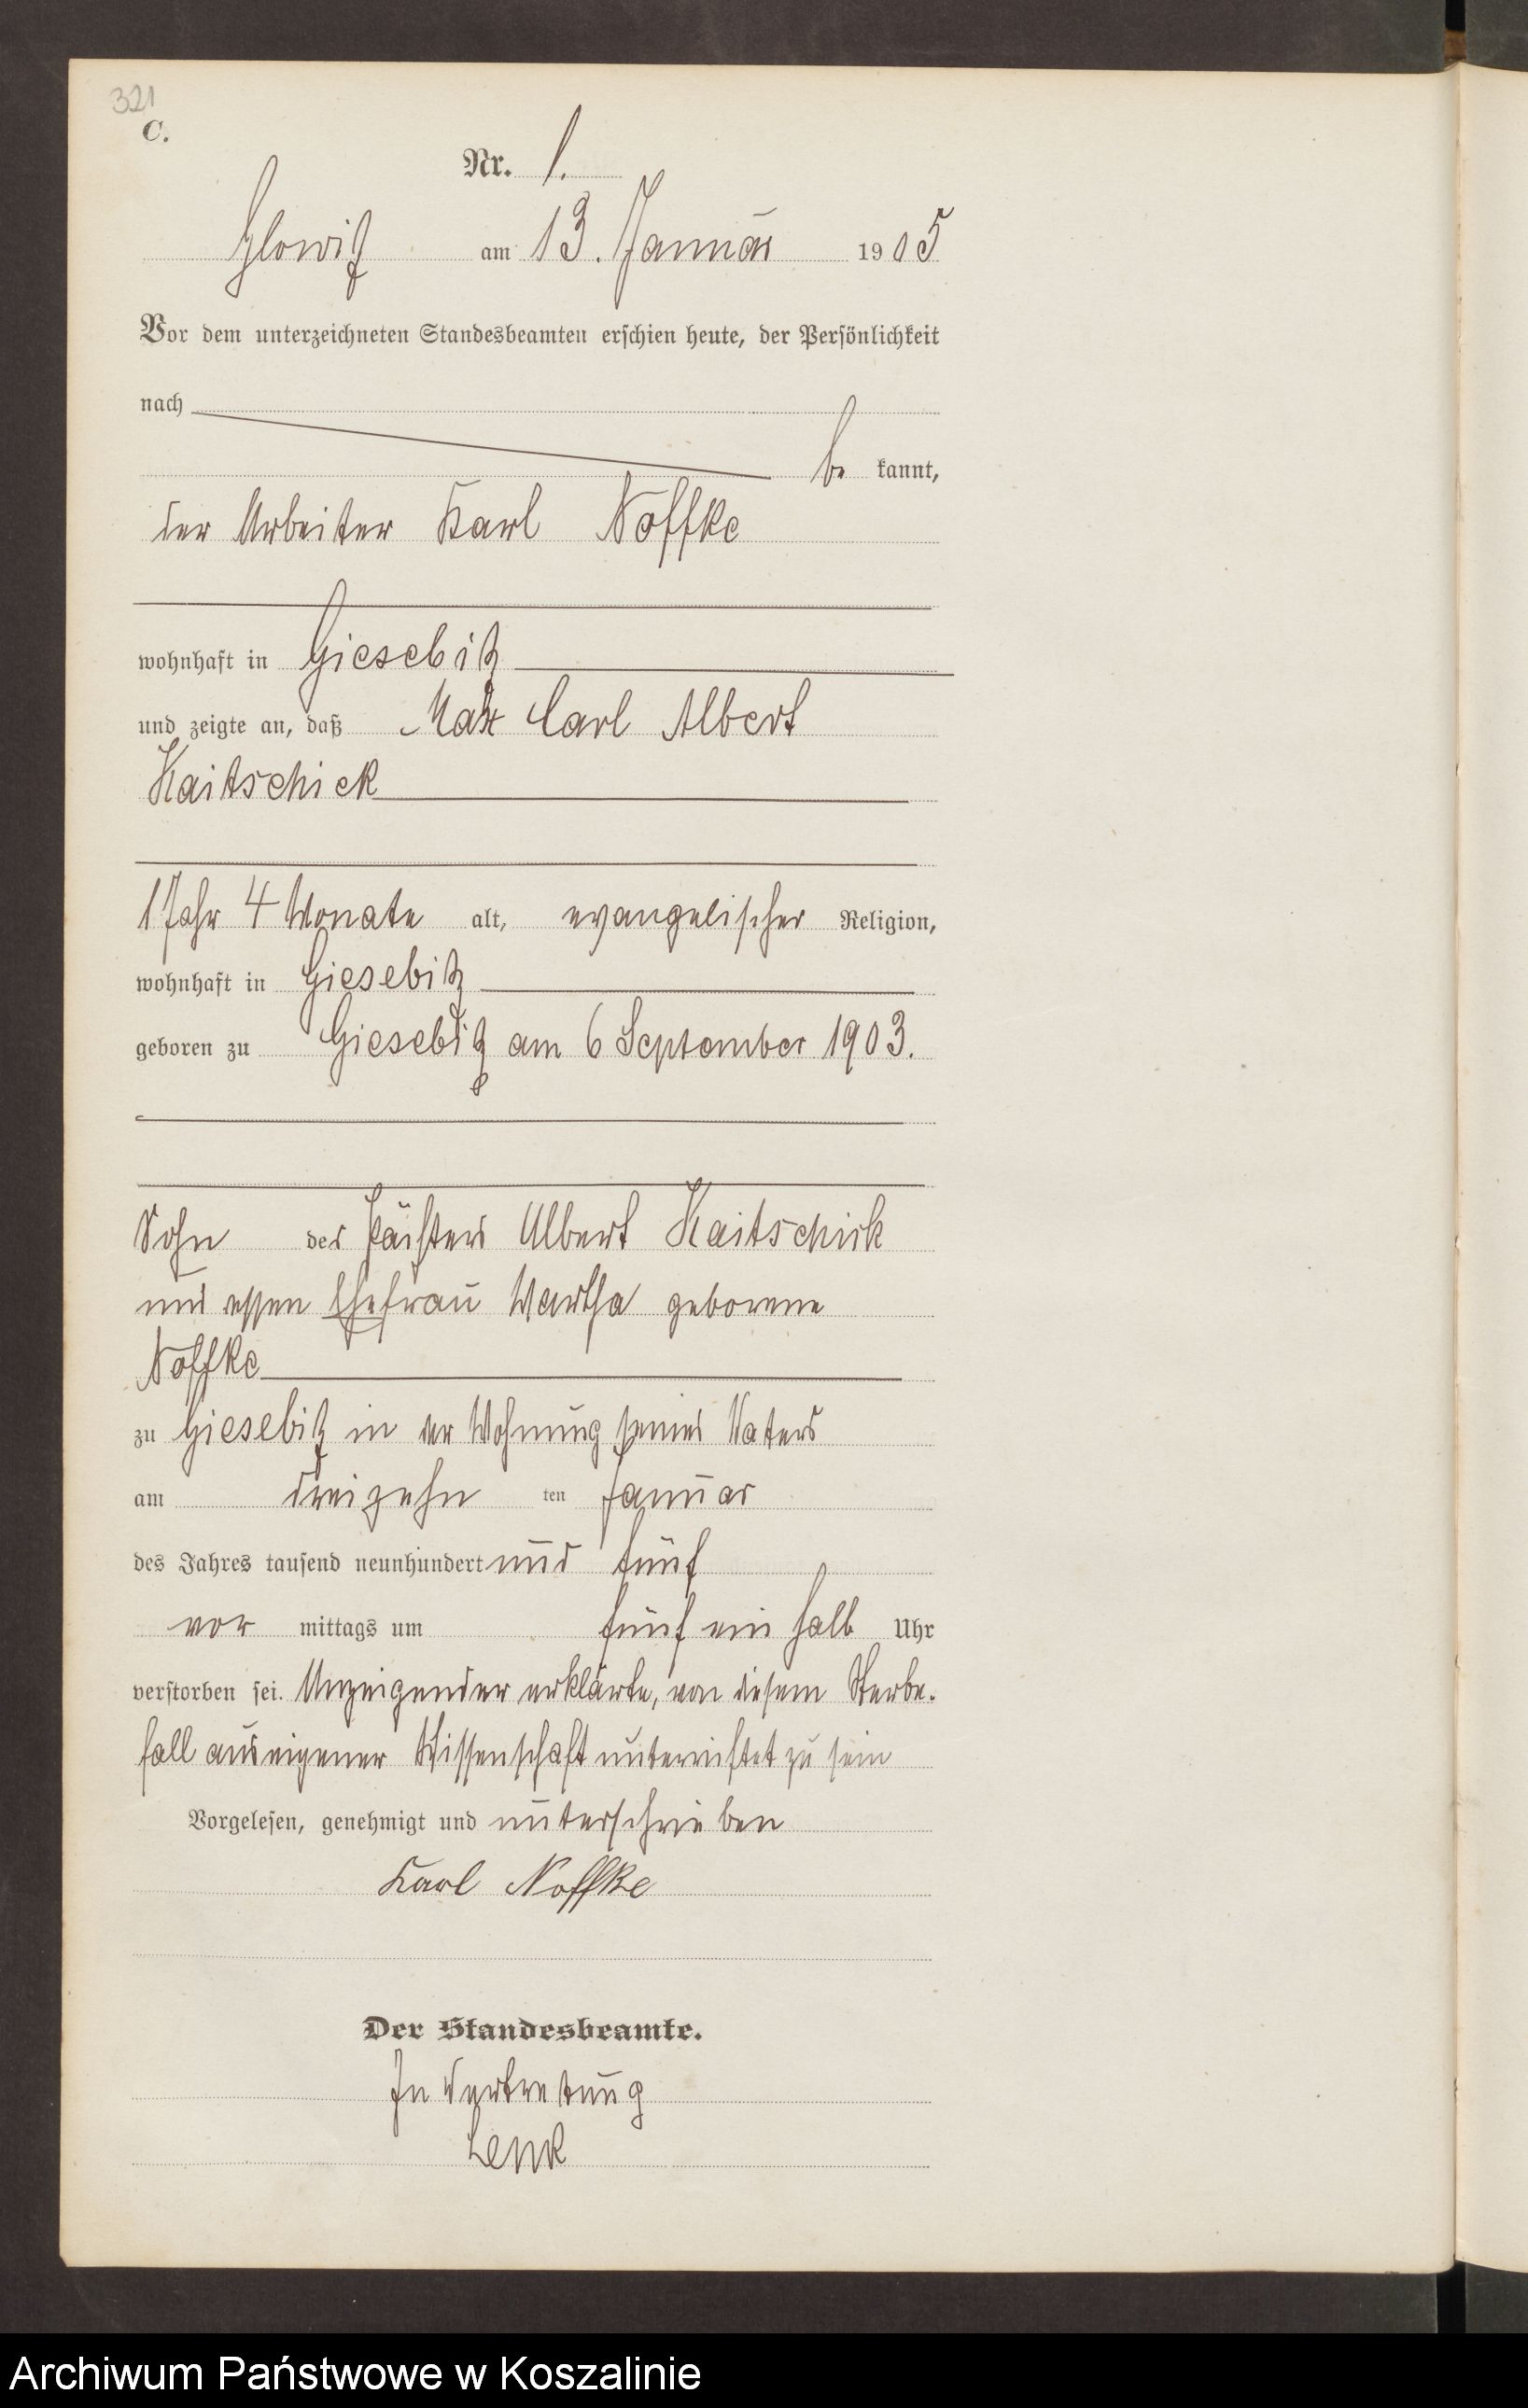 321
C.
Nr. 1.
Glowitz am 13. Januar 1905
Vor dem unterzeichneten Standesbeamten erschien heute, der Persönlichkeit
nach
be kannt,
der Arbeiter Karl Noffke
wohnhaft in Giesebitz
und zeigte an, daß Max Carl Albert
Kaitschick
1 Jahr 4 Monate alt, evangelischer Religion,
wohnhaft in Giesebitz
geboren zu Giesebitz am 6 September 1903.
Sohn des Pächters Albert Kaitschick
und essen Ehefrau Martha geborene
Noffke
zu Giesebitz in der Wohnung seines Vaters
am dreizehn ten Januar
des Jahres tausend neunhundert und fünf
vor mittags um fünf ein halb Uhr
verstorben sei. Anzeigender erklärte, von diesem Sterbe-
fall aus eigener Wissenschaft unterrichtet zu sein
Vorgelesen, genehmigt und unterschrieben
Karl Noffke
Der Standesbeamte.
In Vertretung
Lenk
Archiwum Państwowe w Koszalinie